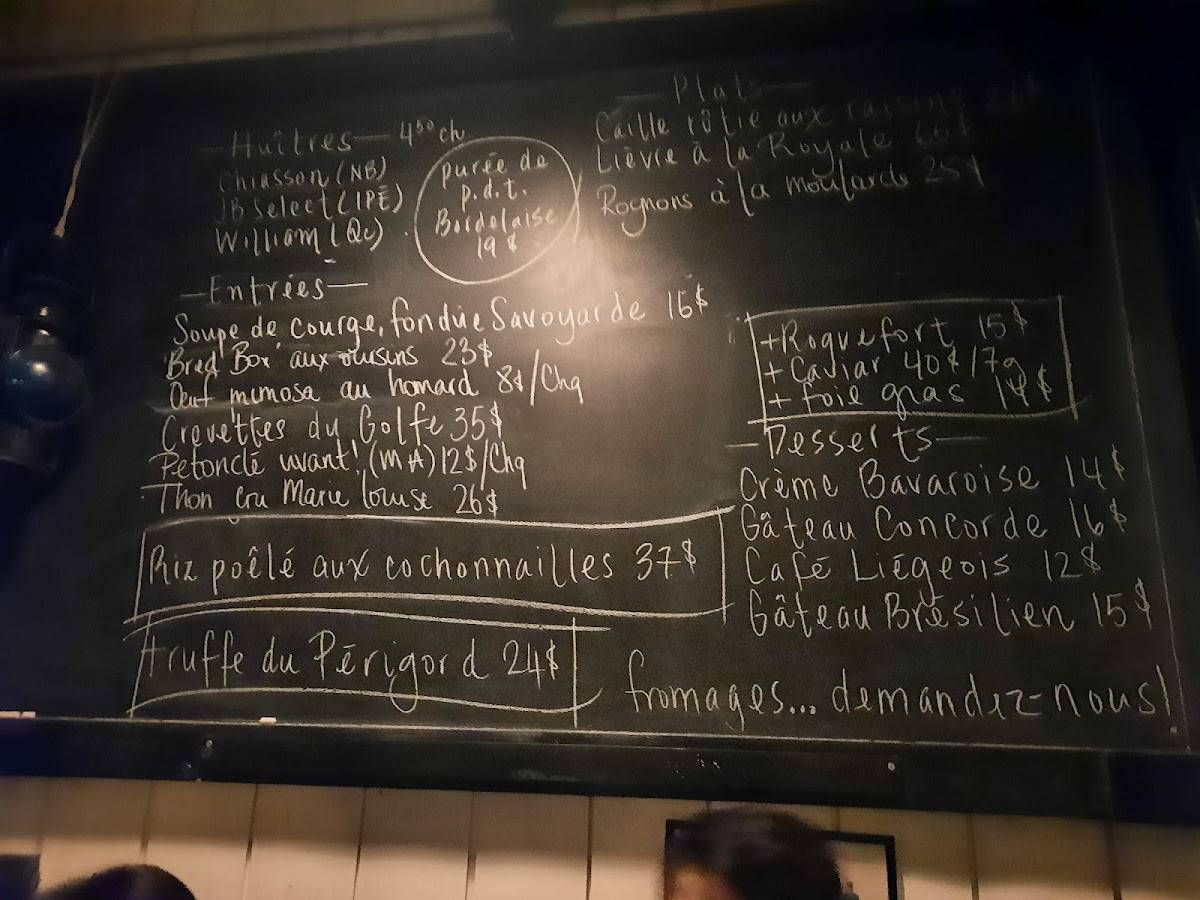 — Huîtres — 4⁵⁰ ch
Chiasson (NB)
JB Select (IPÉ)
William (Qc)
purée de
p.d.t.
Bordelaise
19 $
— Entrées —
Soupe de courge, fondue Savoyarde 16$
"Bred Box" aux oursins 23$
Oeuf mimosa au homard 8$/Chq
Crevettes du Golfe 35$
Petoncle vivant! (MA) 12$/Chq
Thon cru Marie Louise 26$
Riz poêlé aux cochonnailles 37$
truffe du Périgord 24$
— Plats —
Caille rôtie aux raisins
Lièvre à la Royale
Rognons à la moutarde 25$
+ Roquefort 15$
+ Caviar 40$/7g
+ foie gras 14$
— Desserts —
Crème Bavaroise 14$
Gâteau Concorde 16$
Café Liégeois 12$
Gâteau Brésilien 15$
fromages... demandez-nous!